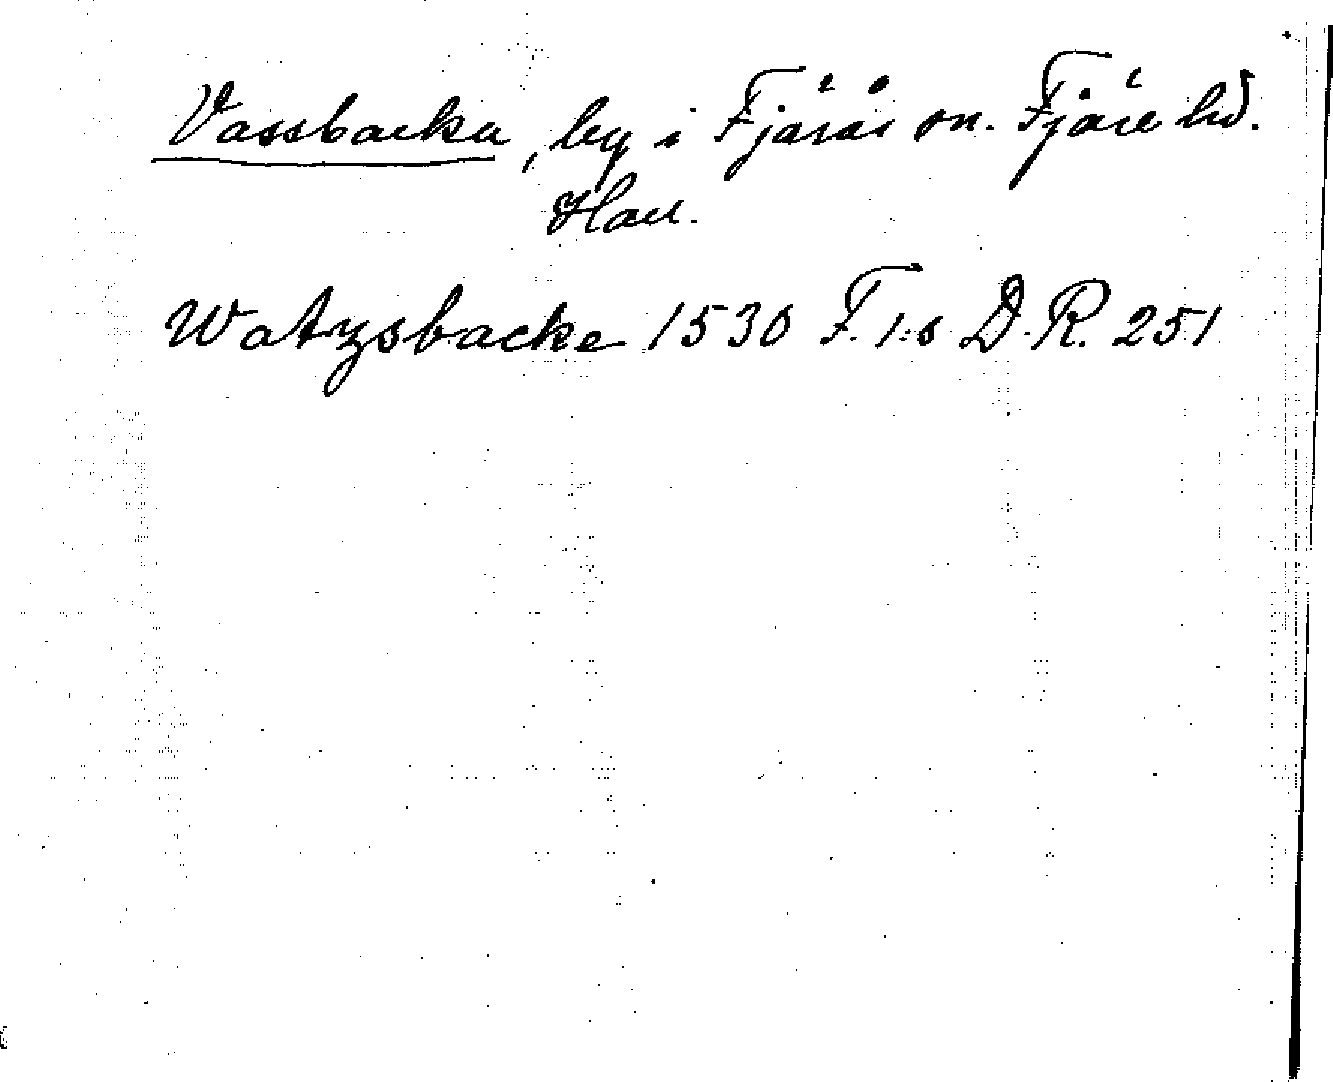 Vassbacka, by i Fjärås sn. Fjäre hd.
Hall.
Watzsbacke 1530 F. 1:s D. R. 251